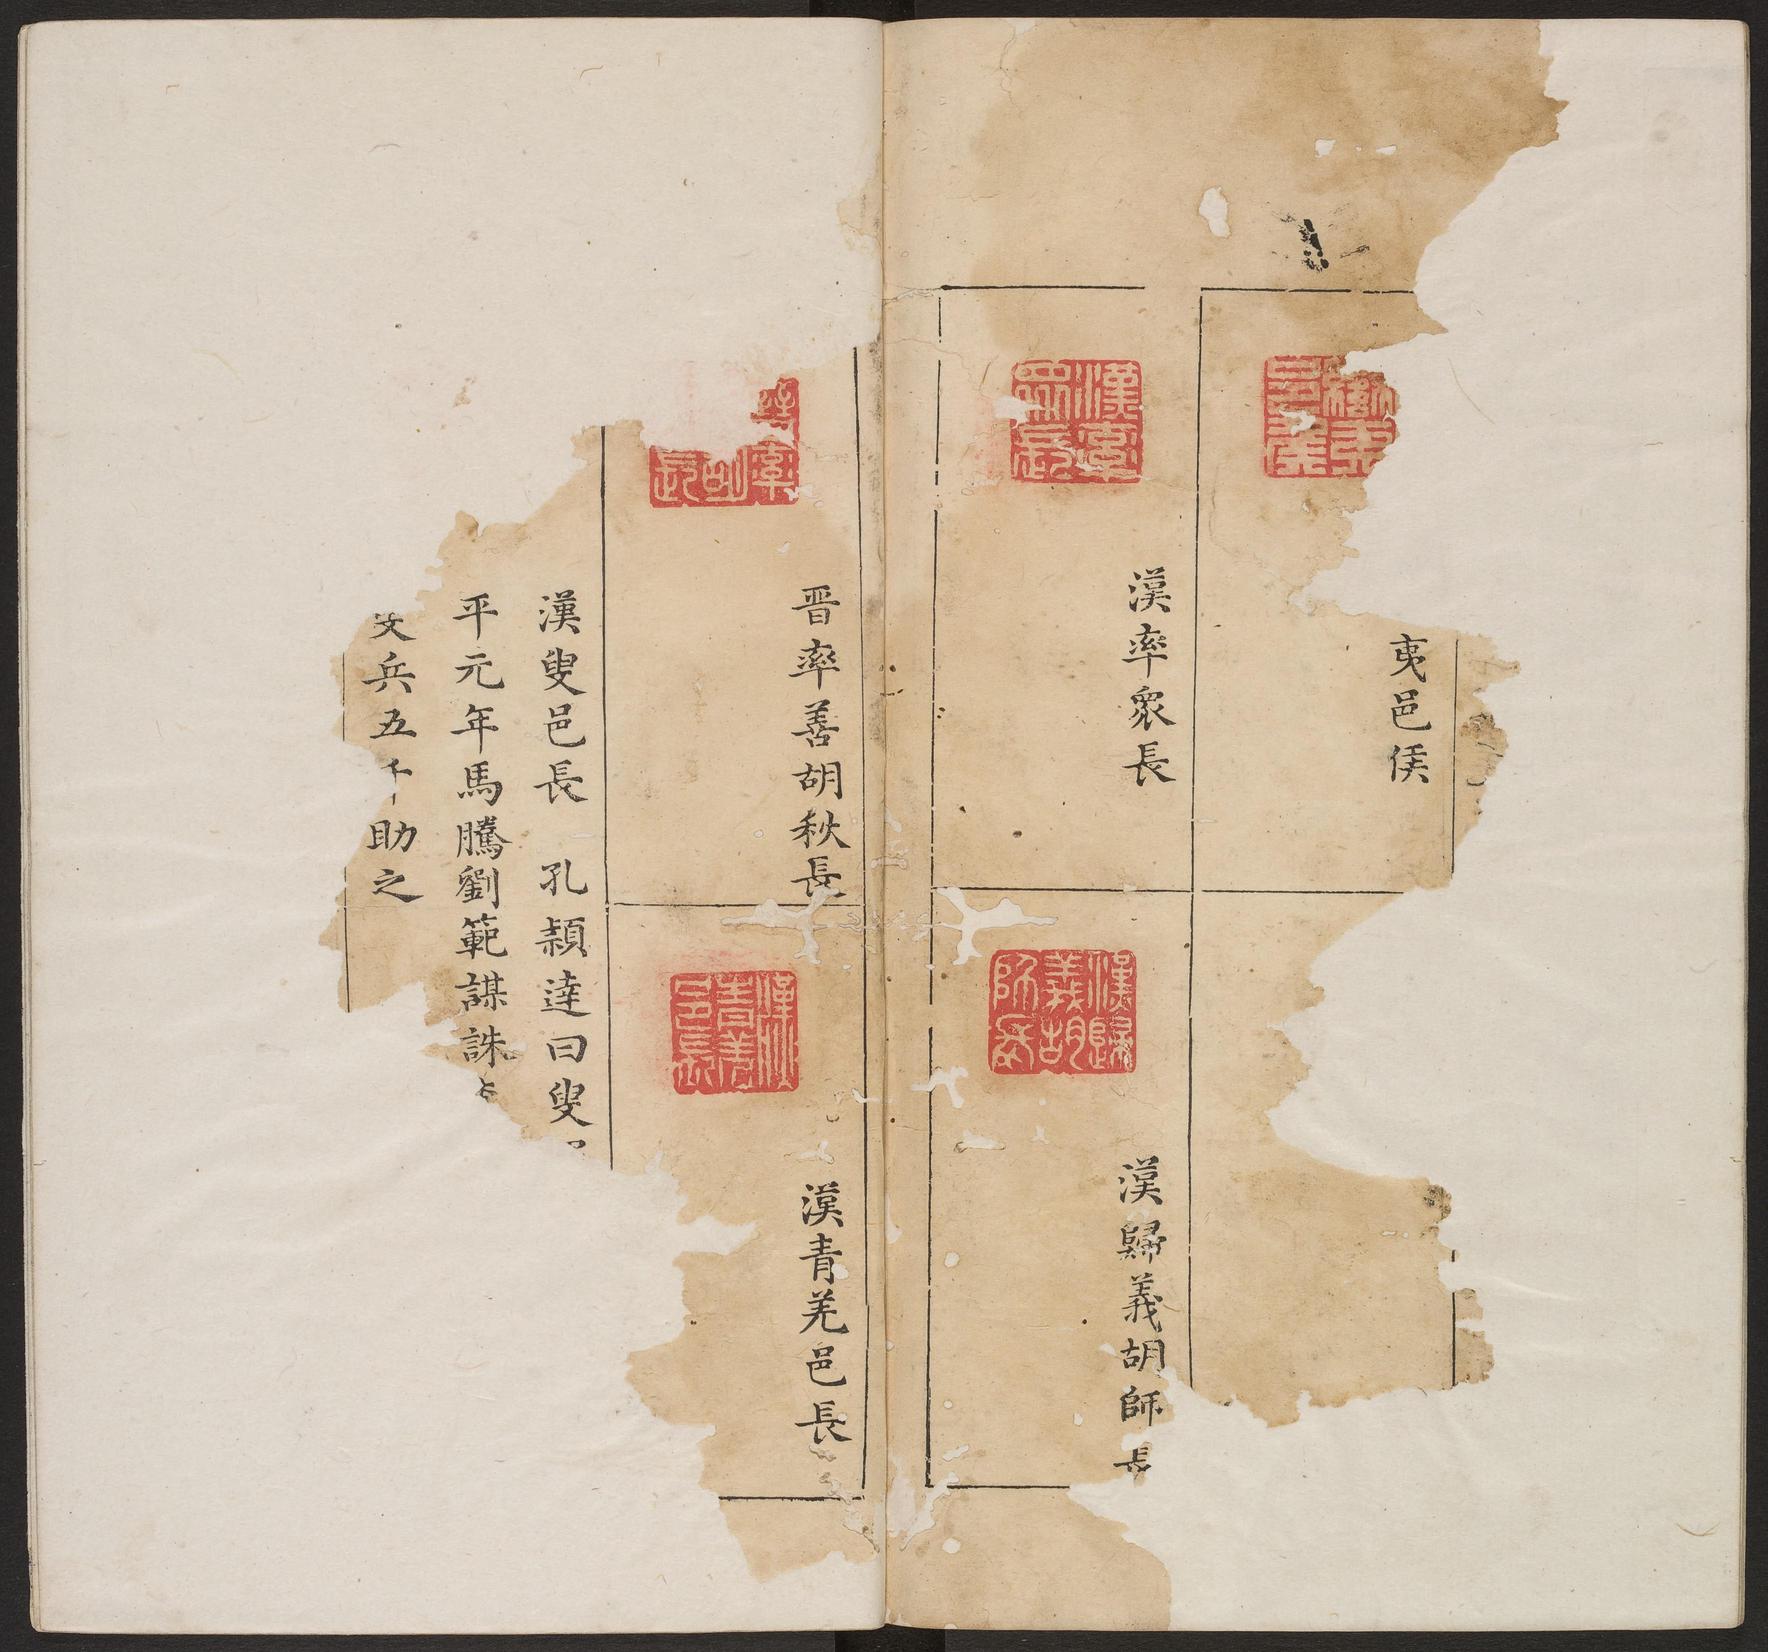 夷邑侯
漢率眾長
漢率衆長
漢歸義胡
漢歸義胡師長
晋率善胡秋長
漢青羌邑長
漢叟邑長 孔穎達曰叟
平元年馬騰劉範謀誅
兵五千助之